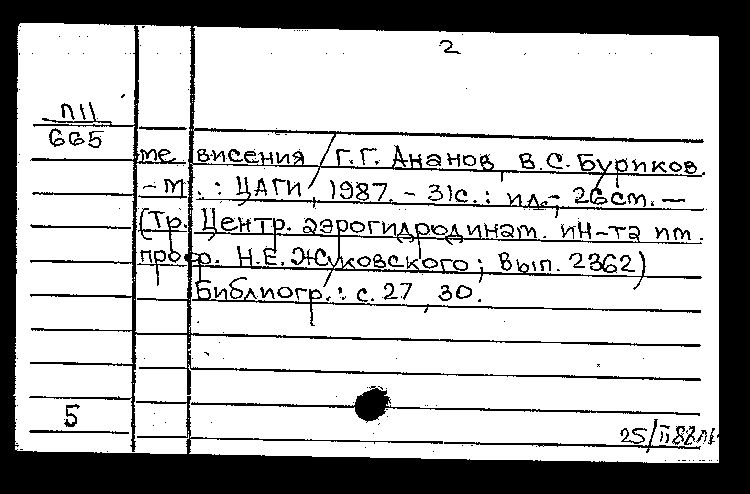 2
П11
665
ме висения / Г.Г. Ананов, В.С. Буриков.
- М. : ЦАГИ, 1987. - 31с. : ил.; 26см. —
(Тр. Центр. аэрогидродинам. ин-та им.
проф. Н.Е. Жуковского; Вып. 2362)
Библиогр.: с. 27, 30.
5